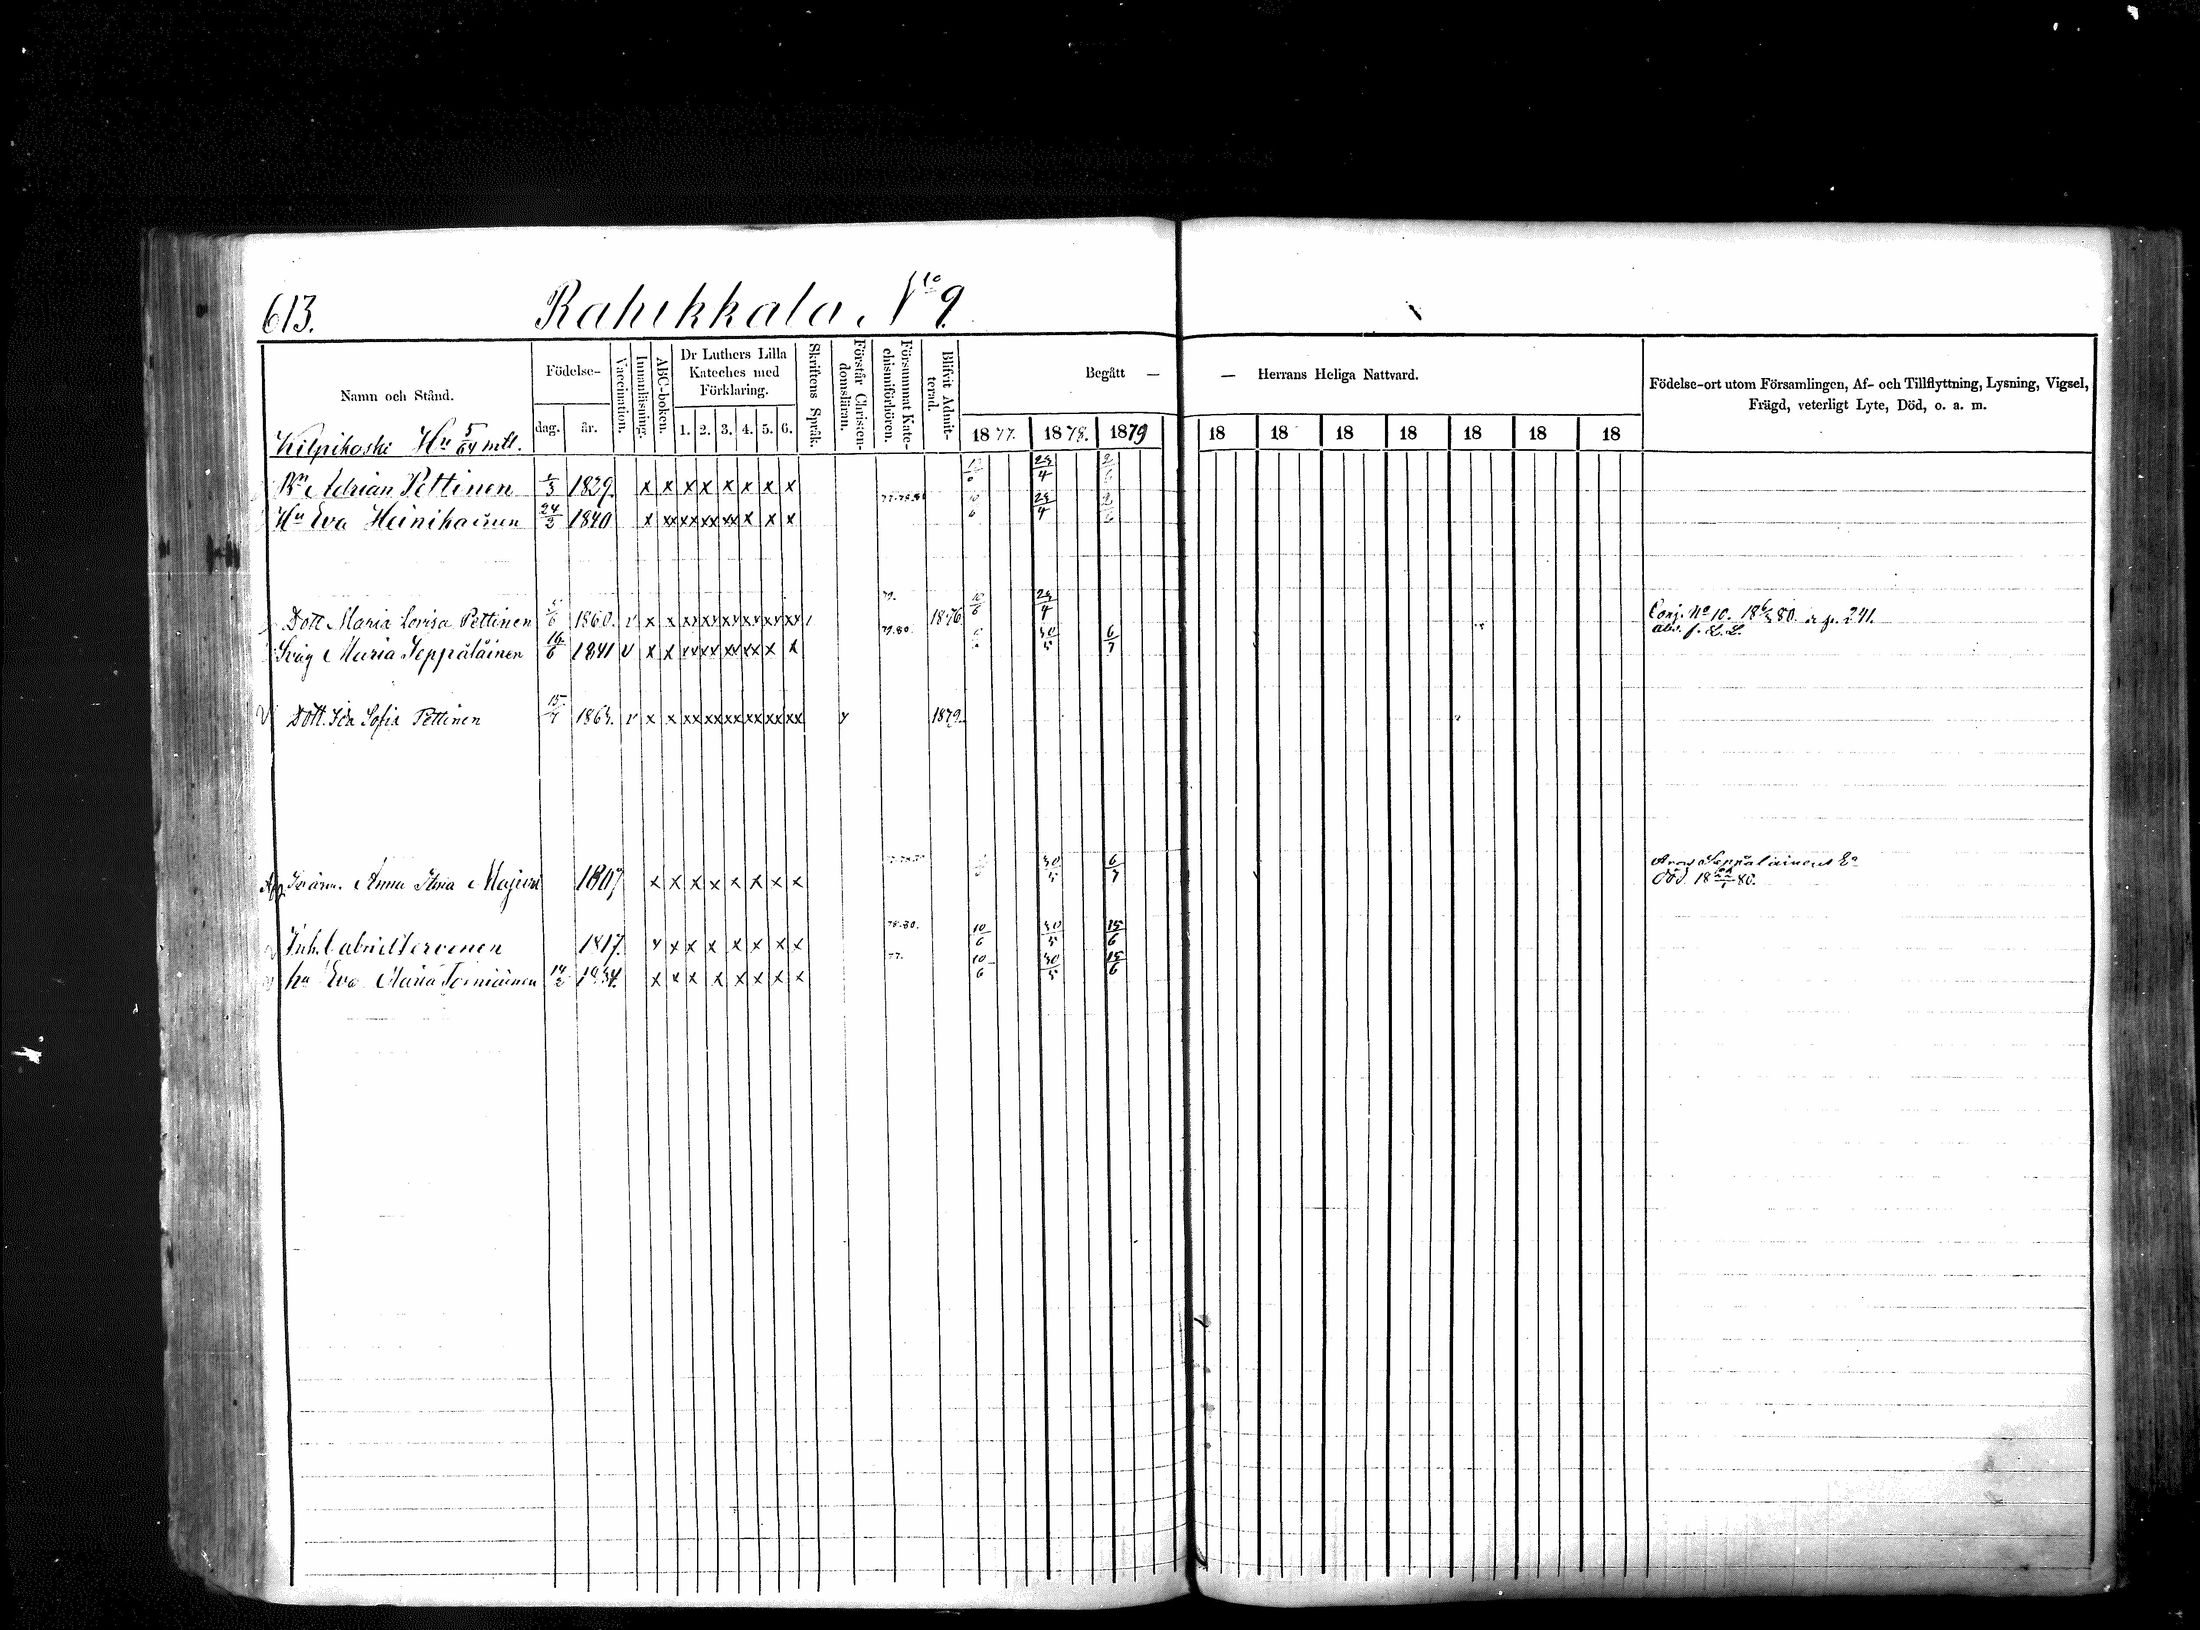 613. Rahikkala N:o 9.
Namn och Stånd.
Födelse-
dag. år.
Vaccination.
Innanläsning.
ABC-boken.
Dr Luthers Lilla
Kateches med
Förklaring.
1. 2. 3. 4. 5. 6.
Skriftens Språk.
Förstår Christen-
domsläran.
Försummat Kate-
chismiförhören.
Blifvit Admit-
terad.
Begått —
— Herrans Heliga Nattvard.
1877. 1878. 1879 18 18 18 18 18 18 18
Födelse-ort utom Församlingen, Af- och Tillflyttning, Lysning, Vigsel,
Frägd, veterligt Lyte, Död, o. a. m.
Kilpikoski Hn 5/64 mtl.
Bn Adrian Pettinen 1839. x x x x x x x x 29/4
Hu Eva Heinikainen 24/3 1840 x xx xx xx xx x x x 10/6 29/4
Dott Maria Lovisa Pettinen 1860. v x x xx xx xx xx xx xx 79. 1876 10/6 29/4 Conj. No 10. 80. 241.
Svåg Maria Seppäläinen 16/6 1841 v x x xx xx xx xx x x 79.80. 30/5 6/7
Dott. Ida Sofia Pettinen 15/7 1863. v x x xx xx xx xx xx xx 1879.
Anna Stina 1807 x x x x x x x x 30/5 6/7 Seppäläinens
Död 80.
Inh. Gabriel Tervonen 1817. x x x x x x x x 78.80. 10/6 30/5 15/6
hu Eva Maria Torniainen 14/2 1834. x x x x x x x x 77. 10/6 30/5 15/6